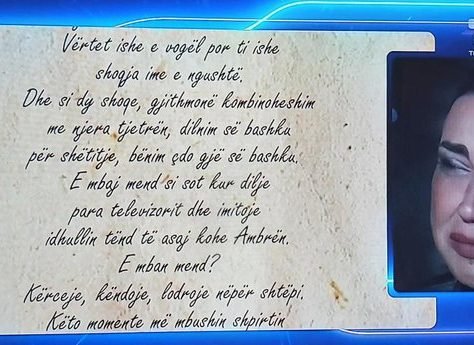 Vërtet ishe e vogël por ti ishe
shoqja ime e ngushtë.
Dhe si dy shoqe, gjithmonë kombinoheshim
me njera tjetrën, dilnim së bashku
për shëtitje, bënim çdo gjë së bashku.
E mbaj mend si sot kur dilje
para televizorit dhe imitoje
idhullin tënd të asaj kohe Ambrën.
E mban mend?
Kërceje, këndoje, lodroje nëpër shtëpi.
Këto momente më mbushin shpirtin